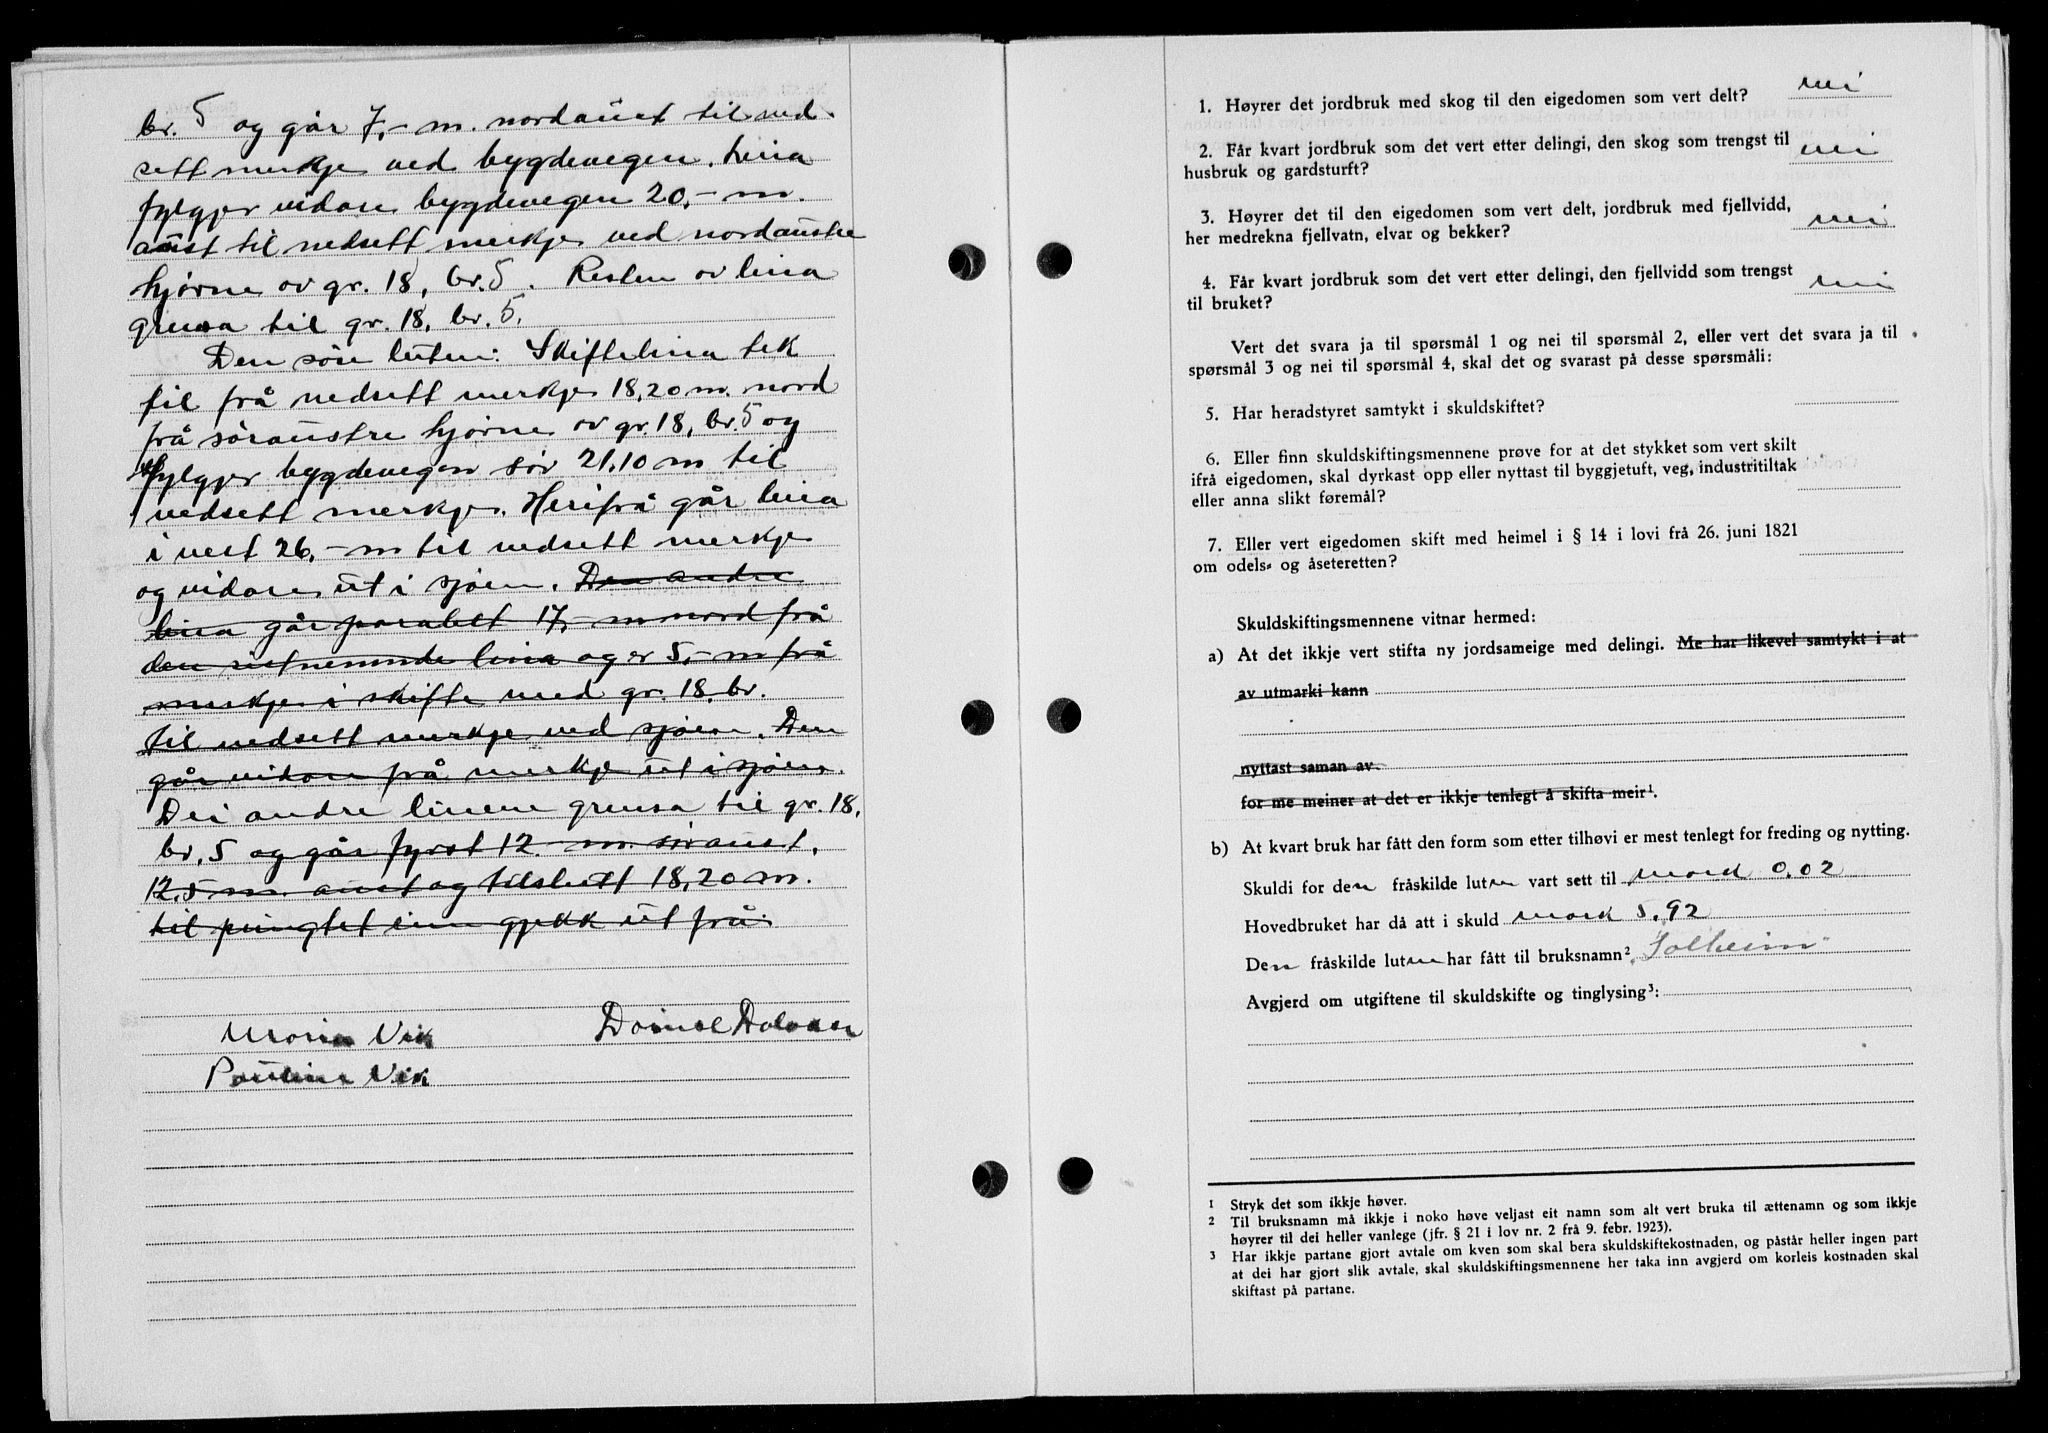 br. 5 og går 7,- m. nordaust til ned-
sett merkje ved bygdevegen. Lina
fylgjer vidare bygdevegen 20,- m.
aust til nedsett merkje ved nordaustre
hjørne av gr. 18, br. 5. Resten av lina
grensa til gr. 18, br. 5.
Den søre luten: Skiftelina tek
til frå nedsett merkje 18,20 m. nord
frå søraustre hjørne av gr. 18, br. 5 og
fylgjer bygdevegen sør 21,10 m til
nedsett merkje. Herifrå går lina
i vest 26,- m til nedsett merkje
og vidare ut i sjøen. Den andre
lina går parallelt 17,- m nord frå
den sistnemnde lina og er 5,- m frå
merkje i skifte med gr. 18 br.
til nedsett merkje ved sjøen. Den
går vidare frå merkje ut i sjøen.
Dei andre linene grensa til gr. 18,
br. 5 og går fyrst 12,- m. søraust,
12,5 m. aust og tilslutt 18,20 m.
til pungtet linn gjekk ut frå.
Maria Vik Daniel
Paulina Vik
1. Høyrer det jordbruk med skog til den eigedomen som vert delt? nei
2. Får kvart jordbruk som det vert etter delingi, den skog som trengst til
husbruk og gardsturft? nei
3. Høyrer det til den eigedomen som vert delt, jordbruk med fjellvidd,
her medrekna fjellvatn, elvar og bekker? nei
4. Får kvart jordbruk som det vert etter delingi, den fjellvidd som trengst
til bruket? nei
Vert det svara ja til spørsmål 1 og nei til spørsmål 2, eller vert det svara ja til
spørsmål 3 og nei til spørsmål 4, skal det og svarast på desse spørsmåli:
5. Har heradstyret samtykt i skuldskiftet?
6. Eller finn skuldskiftingsmennene prøve for at det stykket som vert skilt
ifrå eigedomen, skal dyrkast opp eller nyttast til byggjetuft, veg, industritiltak
eller anna slikt føremål?
7. Eller vert eigedomen skift med heimel i § 14 i lovi frå 26. juni 1821
om odels- og åseteretten?
Skuldskiftingsmennene vitnar hermed:
a) At det ikkje vert stifta ny jordsameige med delingi. Me har likevel samtykt i at
av utmarki kann
nyttast saman av
for me meiner at det er ikkje tenlegt å skifta meir¹.
b) At kvart bruk har fått den form som etter tilhøvi er mest tenlegt for freding og nytting.
Skuldi for den fråskilde luten vart sett til mark 0,02
Hovedbruket har då att i skuld mark 5,92
Den fråskilde luten har fått til bruksnamn² Solheim
Avgjerd om utgiftene til skuldskifte og tinglysing³:
¹ Stryk det som ikkje høver.
² Til bruksnamn må ikkje i noko høve veljast eit namn som alt vert bruka til ættenamn og som ikkje
høyrer til dei heller vanlege (jfr. § 21 i lov nr. 2 frå 9. febr. 1923).
³ Har ikkje partane gjort avtale om kven som skal bera skuldskiftekostnaden, og påstår heller ingen part
at dei har gjort slik avtale, skal skuldskiftingsmennene her taka inn avgjerd om korleis kostnaden skal
skiftast på partane.